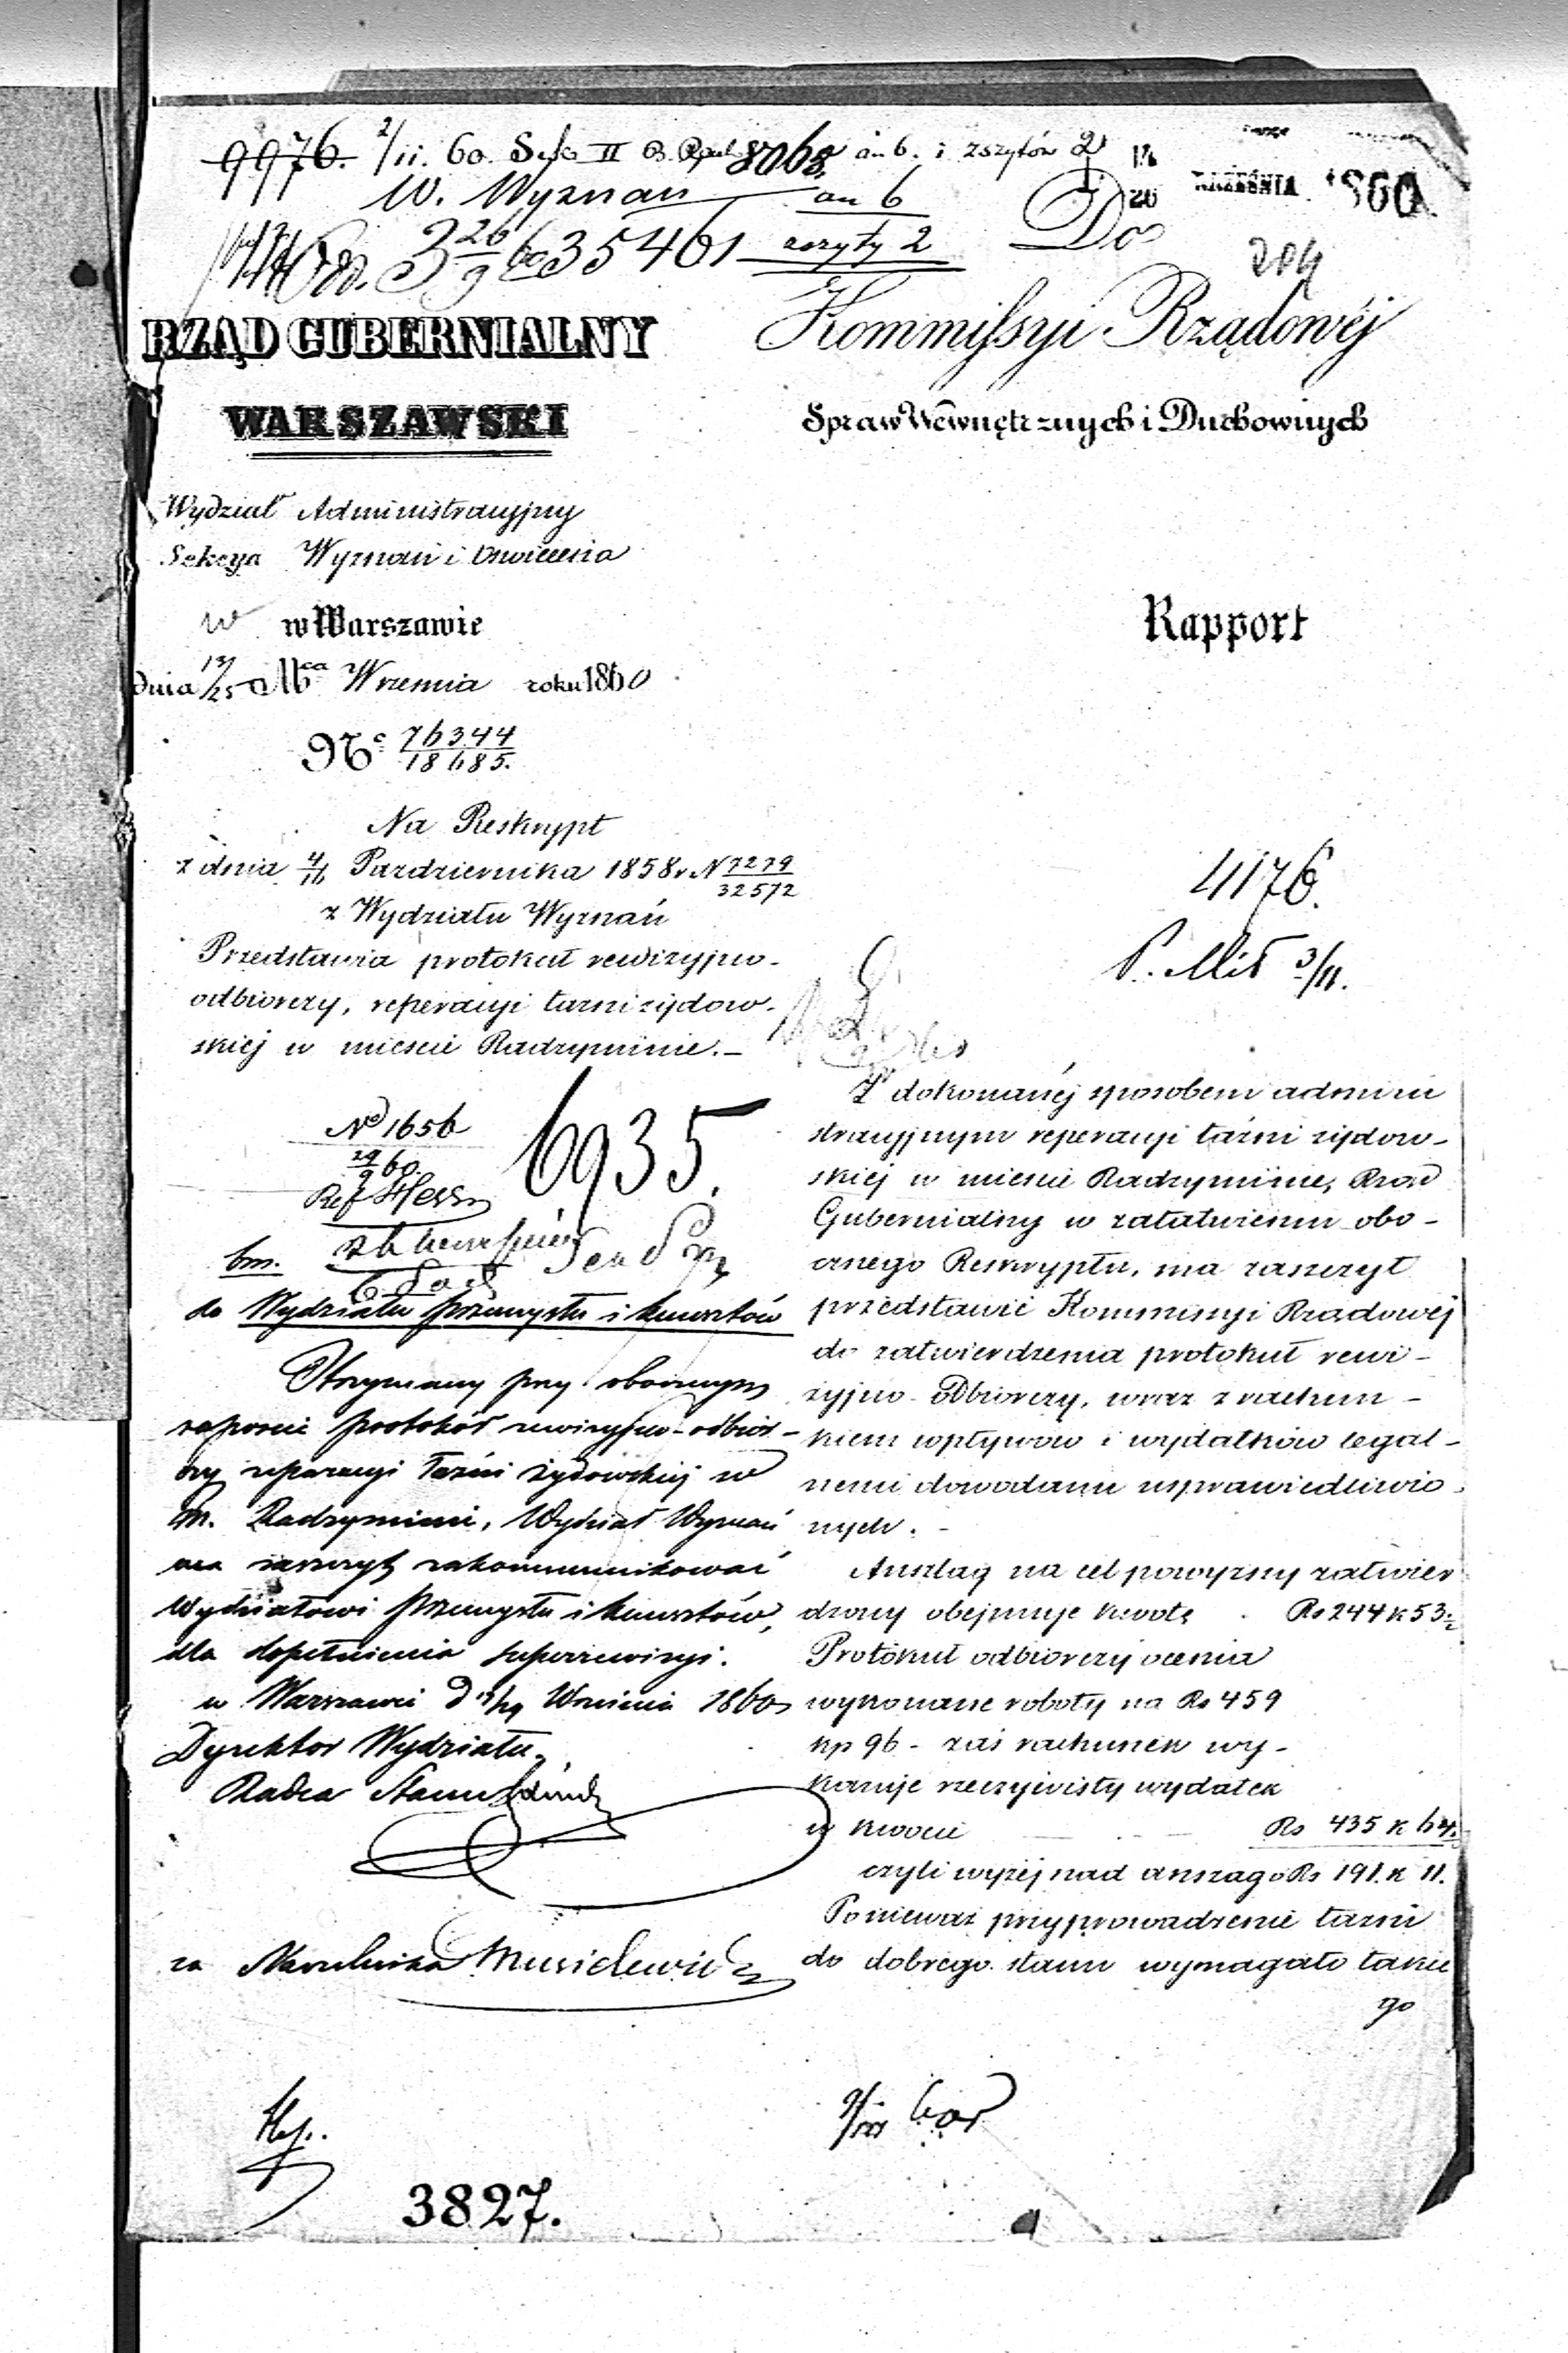 9976. 2/11. 60. II 8068 an 6. i zszytów 2
W. Wyznań an 6
35461 zszyty 2
WRZEŚNIA 1860
Do
204
RZĄD GUBERNIALNY
WARSZAWSKI
Kommissyi Rządowéj
Spraw Wewnętrznych i Duchownych
Wydział Administracyjny
Sekcya Wyznań i Oświecenia
w Warszawie
dnia 13/25 Mca Wrzesnia roku 1860
No 76344/18685.
Rapport
Na Reskrypt
z dnia 4/16 Pazdziernika 1858 r N 7279/32572
z Wydziału Wyznań
Przedstawia protokuł rewizyjno-
odbiorczy, reperacyi łazni żydow-
skiej w miescie Radzyminie.–
4176.
P. Mił 3/11.
No 1656
29/9 60.
Ref Hess
6935.
bm.
do Wydziału przemysłu i kunsztów
Otrzymany przy obocznym
raporcie protokół rewizyjno-odbior-
czy reparacyi łaźni żydowskiej w
m. Radzyminie, Wydział Wyznań
ma zaszczyt zakommunikować
Wydziałowi przemysłu i kunsztów,
dla dopełnienia superrewizyi.
w Warszawie d Września 1860
Dyrektor Wydziału,
Radca Stanu
za Naczelnika
Z dokonanéj sposobem admini
stracyjnym reperacyi łaźni żydow-
skiéj w miescie Radzyminie, Rząd
Gubernialny w załatwieniu obo-
cznego Reskryptu, ma zaszczyt
przedstawić Kommissyi Rządowéj
do zatwierdzenia protokuł rewi-
zyjno-odbiorczy, wraz z rachun-
kiem wpływów i wydatków legal-
nemi dowodami usprawiedliwio
nych.-
Anszlag na cel powyzszy zatwier
dzony obejmuje kwotę Rs 244 k 53½
Protokuł odbiorczy ocenia
wykonane roboty na Rs 459
kp 96 - zaś rachunek wy-
kazuje rzeczywisty wydatek
w kwocie Rs 435 k 64½
czyli wyżéj nad anszlag o Rs 191. k 11.
Ponieważ przyprowadzenie łazni
do dobrego stanu wymagało takie
go
3827.